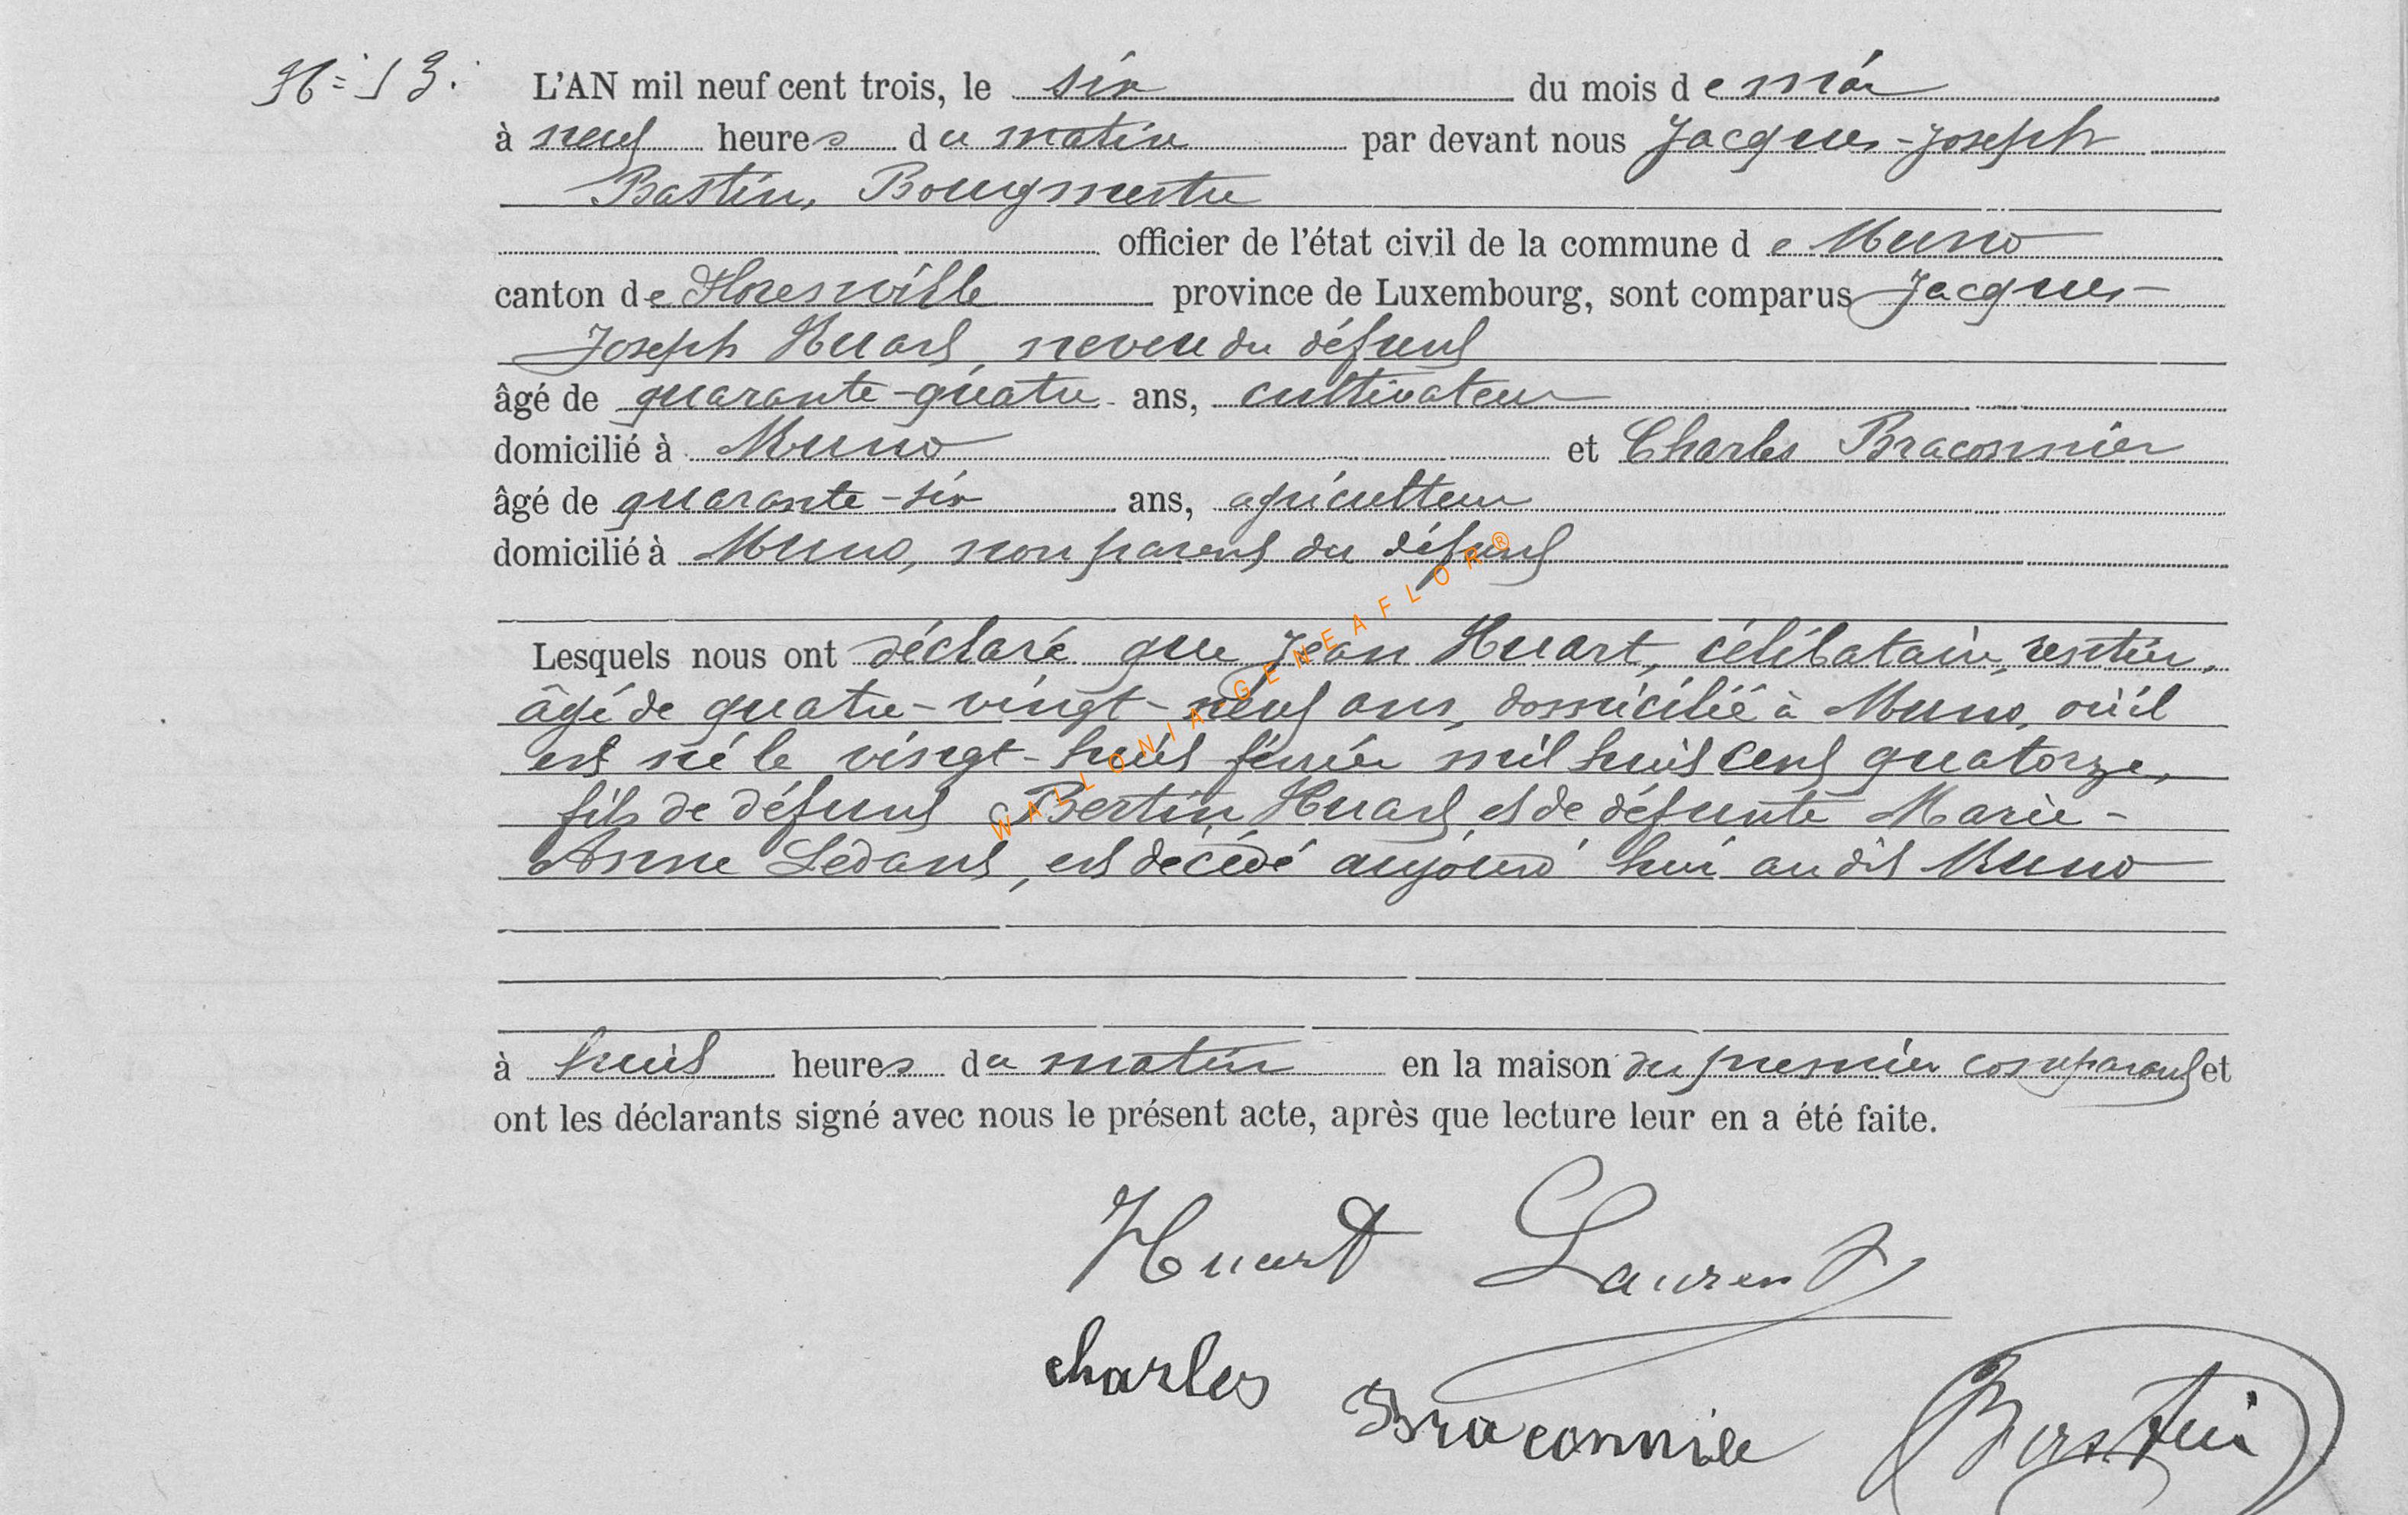 N: 13.
L'AN mil neuf cent trois, le six du mois de mai
à neuf heures du matin par devant nous Jacques-Joseph
Bastin, Bourgmestre
officier de l'état civil de la commune de Muno
canton de Florenville province de Luxembourg, sont comparus Jacques-
Joseph Huart, neveu du défunt
âgé de quarante-quatre ans, cultivateur
domicilié à Muno et Charles Braconnier
âgé de quarante-six ans, agriculteur
domicilié à Muno, non parent du défunt
Lesquels nous ont déclaré que Jean Huart, célibataire, rentier,
âgé de quatre-vingt-neuf ans, domicilié à Muno, où il
est né le vingt-huit février mil huit cent quatorze,
fils de défunt Bertin Huart et de défunte Marie-
Anne Ledant, est décédé aujourd'hui au dit Muno
à huit heures du matin en la maison du premier comparant et
ont les déclarants signé avec nous le présent acte, après que lecture leur en a été faite.
Huart Laurent
Charles Braconnier Bastin
WALLONIA-GENEAFLOR®